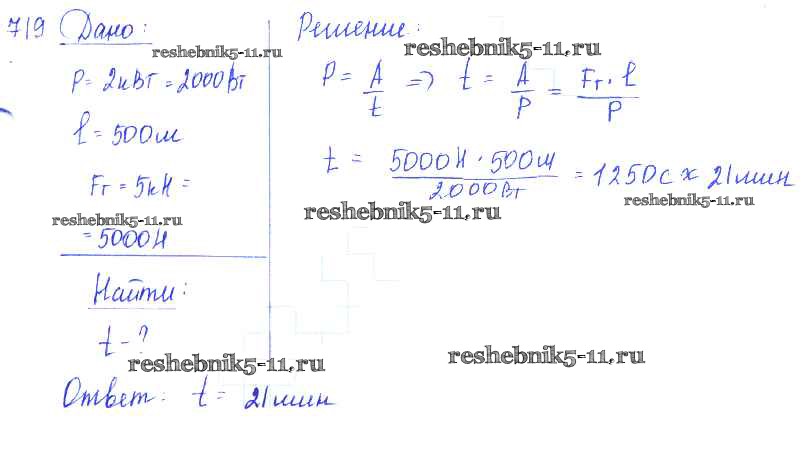 719 Дано:
reshebnik5-11.ru
P = 2кВт = 2000Вт
l = 500м
Fт = 5кН =
reshebnik5-11.ru
= 5000Н
Найти:
t - ?
reshebnik5-11.ru
Ответ: t = 21мин
Решение:
reshebnik5-11.ru
P = A/t => t = A/P = Fт · l/P
t = 5000Н · 500м/2000Вт = 1250с ≈ 21мин
reshebnik5-11.ru
reshebnik5-11.ru
reshebnik5-11.ru